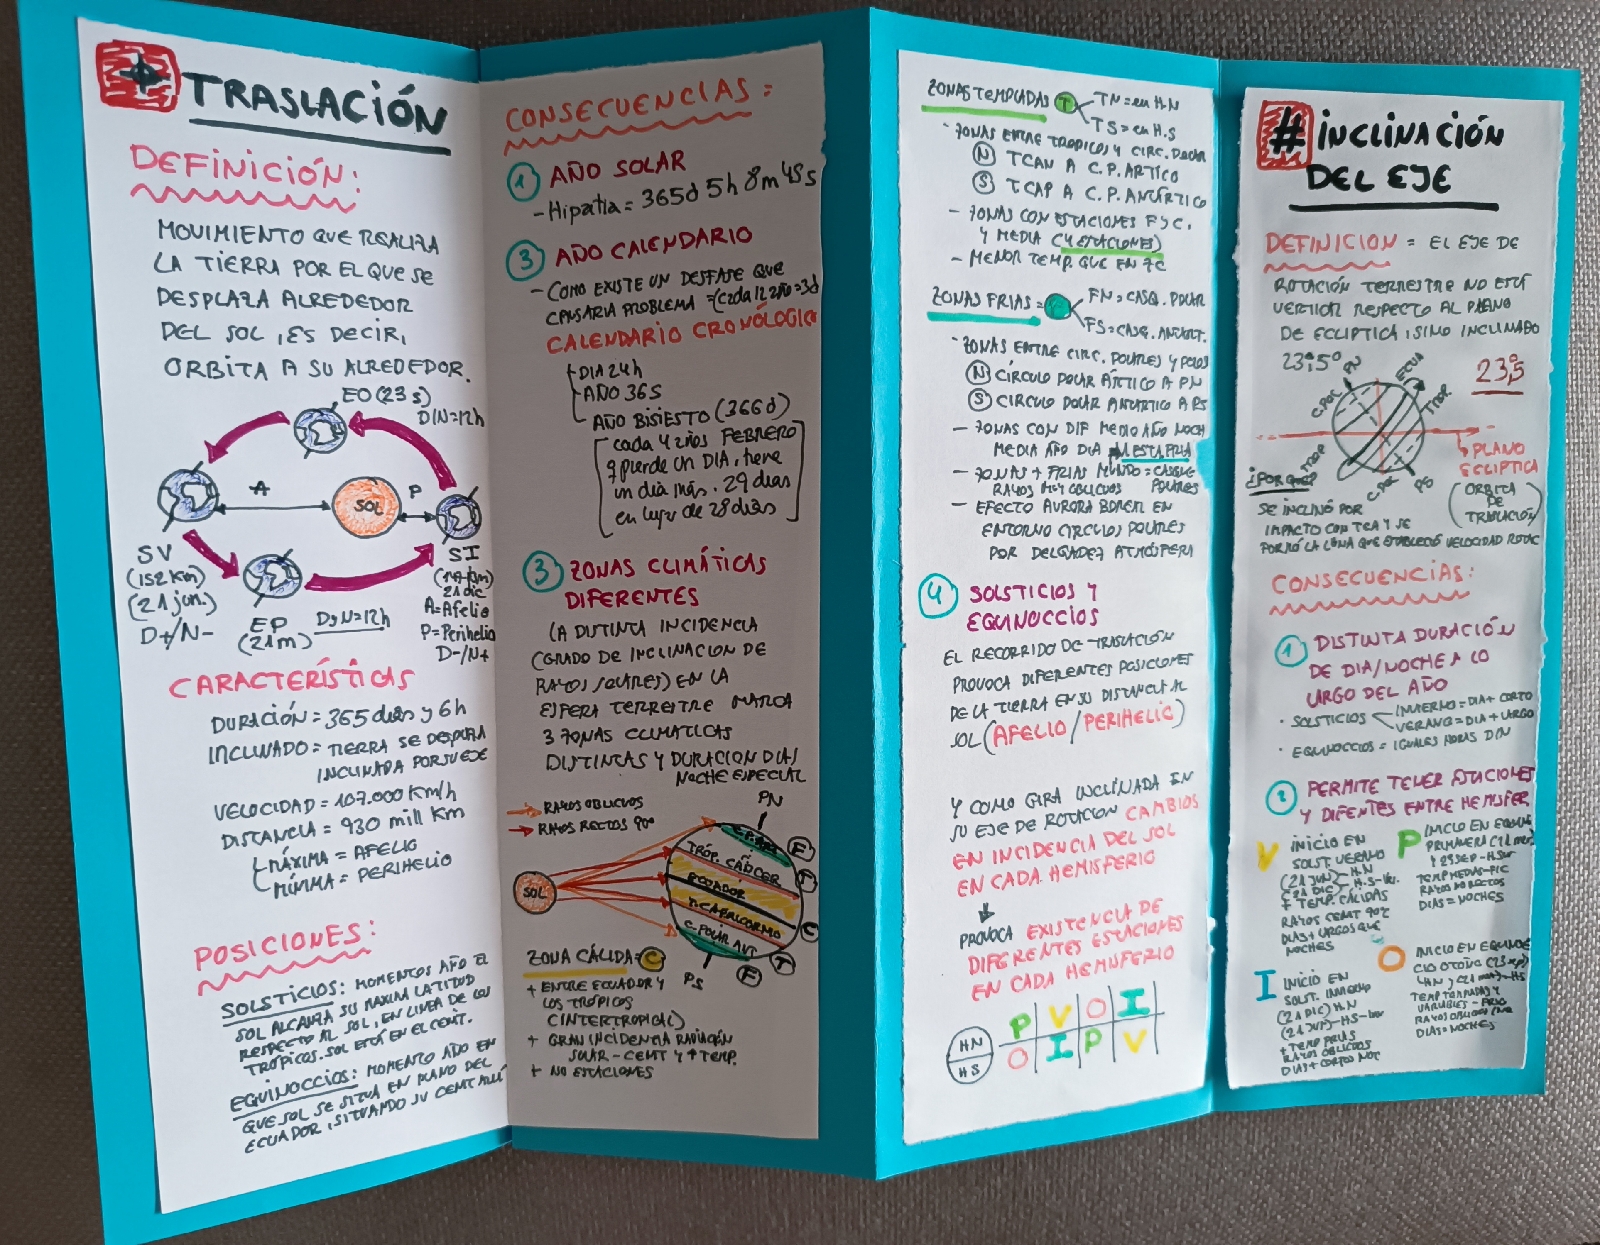 TRASLACIÓN
DEFINICIÓN:
MOVIMIENTO QUE REALIZA
LA TIERRA POR EL QUE SE
DESPLAZA ALREDEDOR
DEL SOL, ES DECIR,
ORBITA A SU ALREDEDOR.
EO (23 s)
D/N=12h
A
SOL
P
SV
(152 Km)
(21 jun.)
D+/N-
EP
(21m)
DyN=12h
SI
21 dic
A=Afelio
P=Perihelio
D-/N+
CARACTERÍSTICAS
DURACIÓN = 365 dias y 6h
INCLINADO = TIERRA SE DESPLAZA
INCLINADA POR SU EJE
VELOCIDAD = 107.000 Km/h
DISTANCIA = 930 mill Km
MÁXIMA = AFELIO
MÍNIMA = PERIHELIO
POSICIONES:
SOLSTICIOS: MOMENTOS AÑO EL
SOL ALCANZA SU MAXIMA LATITUD
RESPECTO AL SOL, EN LINEA DE LOS
TRÓPICOS. SOL ESTÁ EN EL CENIT.
EQUINOCCIOS: MOMENTO AÑO EN
QUE SOL SE SITUA EN PLANO DEL
ECUADOR, SITUANDO SU CENIT ALLÍ
CONSECUENCIAS:
1 AÑO SOLAR
- Hipatia = 365d 5h 8m 45s
3 AÑO CALENDARIO
- COMO EXISTE UN DESFASE QUE
CAUSARIA PROBLEMA =(cada 12 año=3d
CALENDARIO CRONÓLOGICO
DIA 24h
AÑO 365
AÑO BISIESTO (366d)
cada 4 años FEBRERO
q pierde un DIA, tiene
un dia más. 29 dias
en lugar de 28 dias
3 ZONAS CLIMÁTICAS
DIFERENTES
LA DISTINTA INCIDENCIA
(GRADO DE INCLINACION DE
RAYOS SOLARES) EN LA
ESFERA TERRESTRE MARCA
3 ZONAS CLIMATICAS
DISTINTAS Y DURACION DIAS
NOCHE ESPECIAL
RAYOS OBLICUOS
RAYOS RECTOS 90º
PN
SOL
TRÓP. CÁNCER
ECUADOR
T. CAPRICORNIO
C. POLAR ANT
F
T
C
T
F
PS
ZONA CÁLIDA = C
+ ENTRE ECUADOR Y
LOS TRÓPICOS
(INTERTROPICAL)
+ GRAN INCIDENCIA RADIACIÓN
SOLAR - CENIT Y ↑ TEMP.
+ NO ESTACIONES
ZONAS TEMPLADAS T
TN = en H.N
TS = en H.S
- ZONAS ENTRE TROPICOS Y CIRC. POLAR
N TCAN A C.P. ARTICO
S TCAP A C.P. ANTÁRTICO
- ZONAS CON ESTACIONES F y C.
Y MEDIA (4 ESTACIONES)
- MENOR TEMP. QUE EN ZC
ZONAS FRIAS =
FN = CASQ. POLAR
FS = CASQ. ANTÁRT.
- ZONAS ENTRE CIRC. POLARES Y POLOS
N CÍRCULO POLAR ÁRTICO A PN
S CIRCULO POLAR ANTÁRTICO A PS
- ZONAS CON DIF MEDIO AÑO NOCH
MEDIA AÑO DIA
- ZONAS + FRIAS MUNDO = CASQUE
RAYOS MUY OBLICUOS POLARES
- EFECTO AURORA BOREAL EN
ENTORNO CIRCULOS POLARES
POR DELGADEZ ATMÓFERA
4 SOLSTICIOS Y
EQUINOCCIOS
EL RECORRIDO DE TRASLACIÓN
PROVOCA DIFERENTES POSICIONES
DE LA TIERRA EN SU DISTANCIA AL
SOL (AFELIO / PERIHELIO)
Y COMO GIRA INCLINADA EN
SU EJE DE ROTACION CAMBIOS
EN INCIDENCIA DEL SOL
EN CADA HEMISFERIO
PROVOCA EXISTENCIA DE
DIFERENTES ESTACIONES
EN CADA HEMISFERIO
HN P V O I
HS O I P V
# INCLINACIÓN
DEL EJE
DEFINICION = EL EJE DE
ROTACIÓN TERRESTRE NO ESTÁ
VERTICAL RESPECTO AL PLANO
DE ECLIPTICA, SINO INCLINADO
23º,5º
PN
ECUA
23º,5
C.POL
TROP.
TROP
PLANO
ECLÍPTICA
(ORBITA
DE
TRASLACIÓN)
C.POL
PS
¿POR QUÉ?
SE INCLINÓ POR
IMPACTO CON TEA Y SE
FORMÓ LA LUNA QUE ESTABLECIÓ VELOCIDAD ROTAC
CONSECUENCIAS:
1 DISTINTA DURACIÓN
DE DIA/NOCHE A LO
LARGO DEL AÑO
· SOLSTICIOS
INVIERNO = DIA + CORTO
VERANO = DIA + LARGO
· EQUINOCCIOS = IGUALES HORAS D/N
2 PERMITE TENER ESTACIONES
Y DIFENTES ENTRE HEMISFER.
V INICIO EN
SOLST. VERANO
(21 JUN)-H.N
(21 DIC)-H.S-
+ TEMP. CÁLIDAS
RAYOS CENIT 90º
DIAS + LARGOS QUE
NOCHES
P INICIO EN EQUIN.
PRIMAVERA (21 mar)
Y 23 SEP-H
TEMP MEDIAS-
RAYOS NO RECTOS
DIAS = NOCHES
I INICIO EN
SOLST. INVIERNO
(21 DIC) H.N
(21 JUN)-HS-
+ TEMP FRIAS
RAYOS OBLICUOS
DIAS + CORTOS NOT
O INICIO EN EQUINOC
CIO OTOÑO (23 sep)
HN y (21 mar)-HS
TEMP TEMPLADAS Y
VARIABLES -
RAYOS OBLICUOS
DIAS = NOCHES